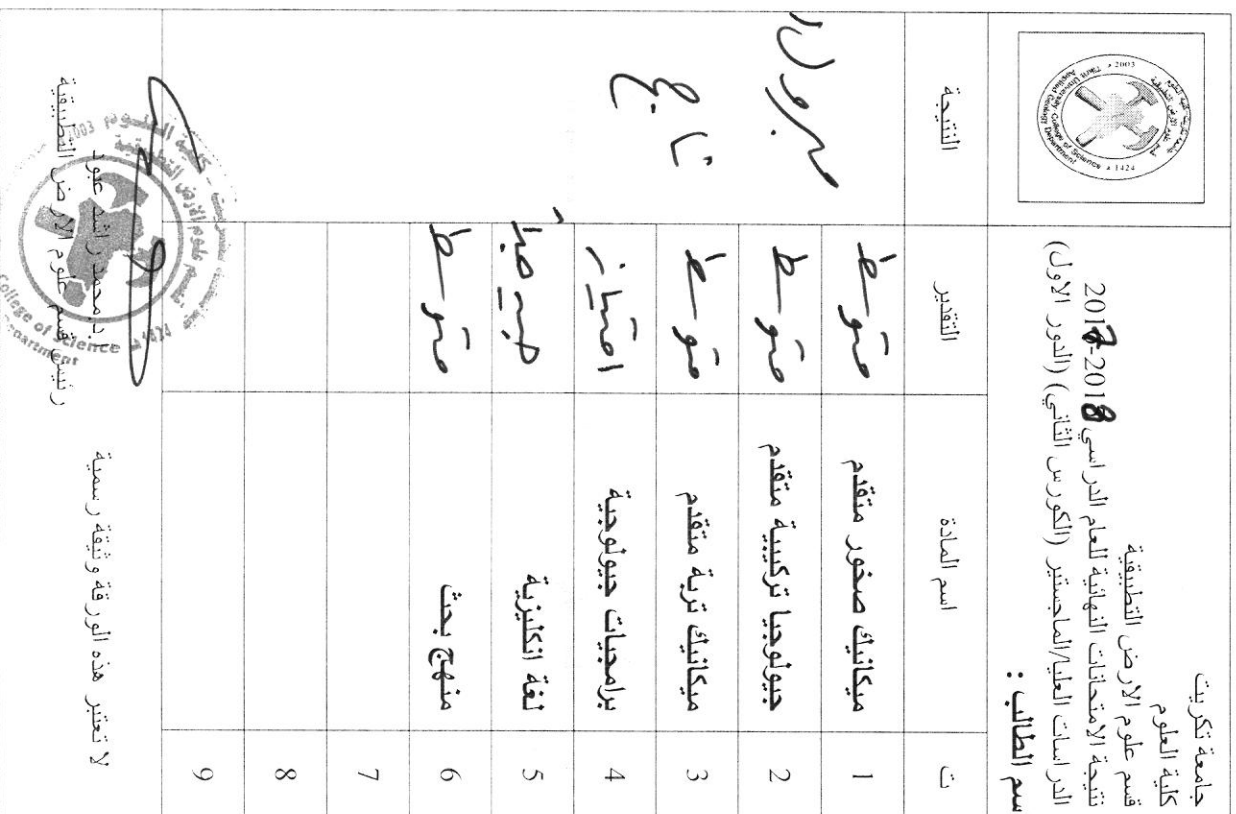 جامعة تكريت
كلية العلوم
قسم علوم الارض التطبيقية
نتيجة الامتحانات النهائية للعام الدراسي 2017-2018
الدراسات العليا/الماجستير (الكورس الثاني) (الدور الاول)
سم الطالب :
ت اسم المادة التقدير النتيجة
1 ميكانيك صخور متقدم متوسط
2 جيولوجيا تركيبية متقدم متوسط
3 ميكانيك تربة متقدم متوسط
4 برامجيات جيولوجية امتياز
5 لغة انكليزية جيد جداً
6 منهج بحث متوسط
7
8
9
ناجح
مبروك
لا تعتبر هذه الورقة وثيقة رسمية
ا.د.محمد راشد عبود
رئيس قسم علوم الارض التطبيقية
Tikrit University College of Science
Applied Geology Department
2003
1424